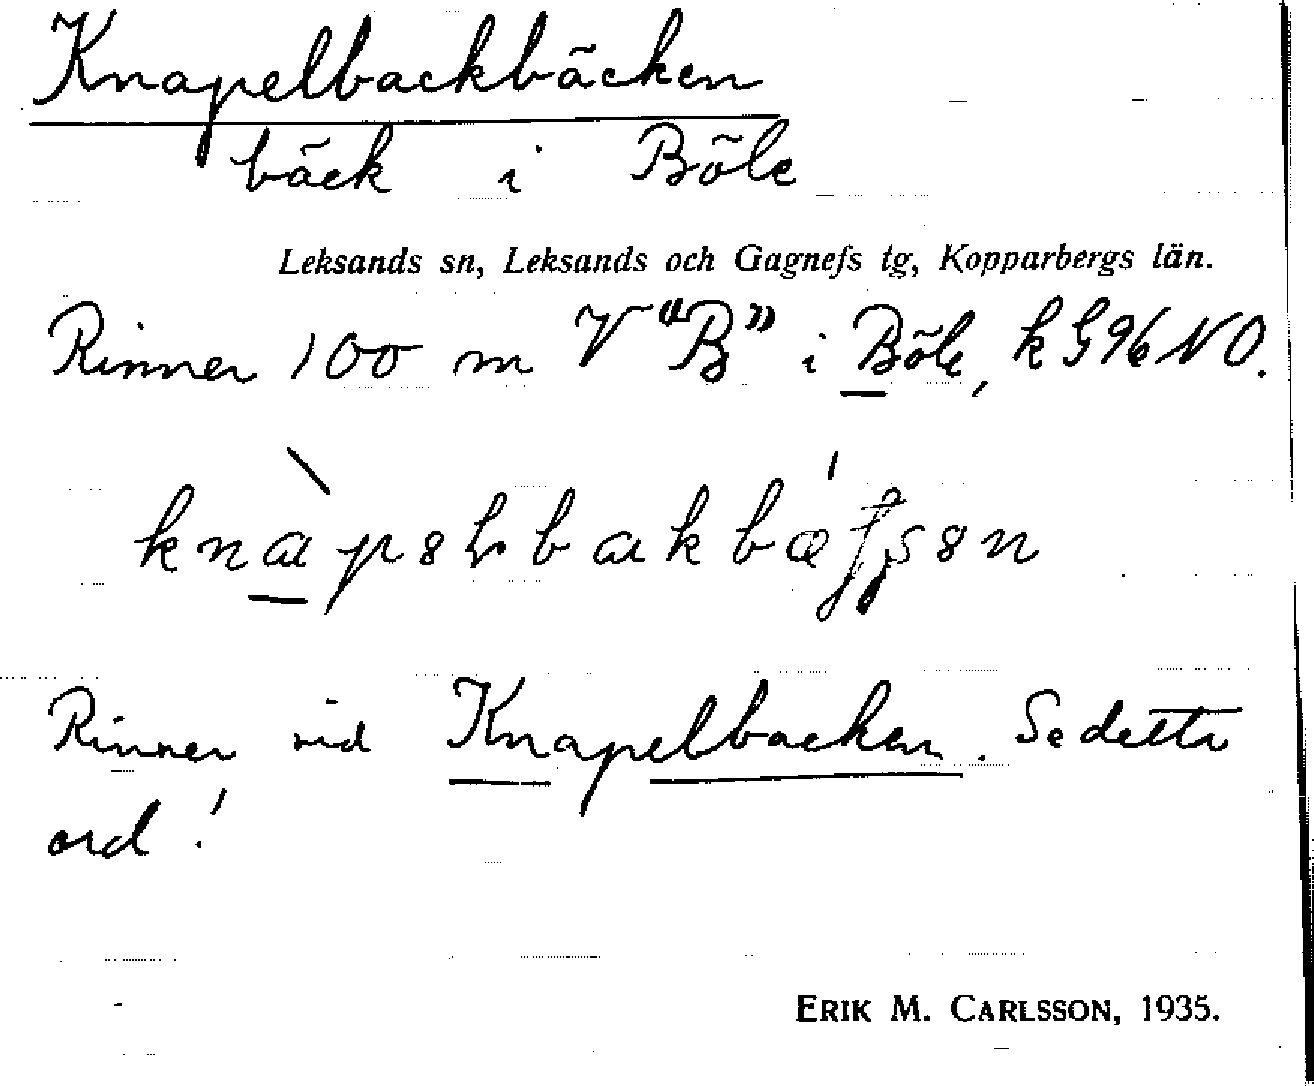 Knapelbackbäcken
bäck i Böle
Leksands sn, Leksands och Gagnefs tg, Kopparbergs län.
Rinner 100 m V "B" i Böle, k G 96 NO.
Rinner vid Knapelbacken. Se detta
ord!
ERIK M. CARLSSON, 1935.